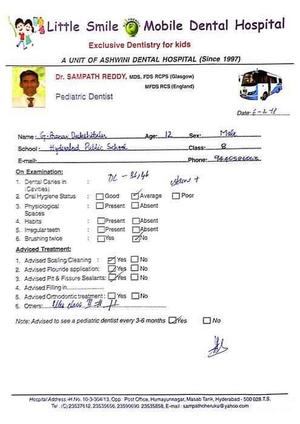 Little Smile Mobile Dental Hospital
Exclusive Dentistry for kids
A UNIT OF ASHWINI DENTAL HOSPITAL (Since 1997)
Dr. SAMPATH REDDY, MDS, FDS RCPS (Glasgow)
MFDS RCS (England)
Pediatric Dentist
Date: 6-2-18
Name : G. Pranav Age: 12 Sex: Male
School : Hyderabad Public School Class: 8
E-mail: Phone:
On Examination:
1. Dental Caries in Cavities) : DC
2. Oral Hygiene Status : Good Average Poor
3. Physiological Spaces : Present Absent
4. Habits : Present Absent
5. Irregular teeth : Present Absent
6. Brushing twice : Yes No
Adviced Treatment:
1. Advised Scaling/Cleaning : Yes No
2. Advised Flouride application: Yes No
3. Advised Pit & Fissure Sealants: Yes No
4. Advised Filling in
5. Advised Orthodontic treatment : Yes No
6. Others:
Note: Advised to see a pediatric dentist every 3-6 months Yes No
Hospital Address: H.No. 10-3-304/13, Opp. Post Office, Humayunnagar, Masab Tank, Hyderabad - 500 028 T.S.